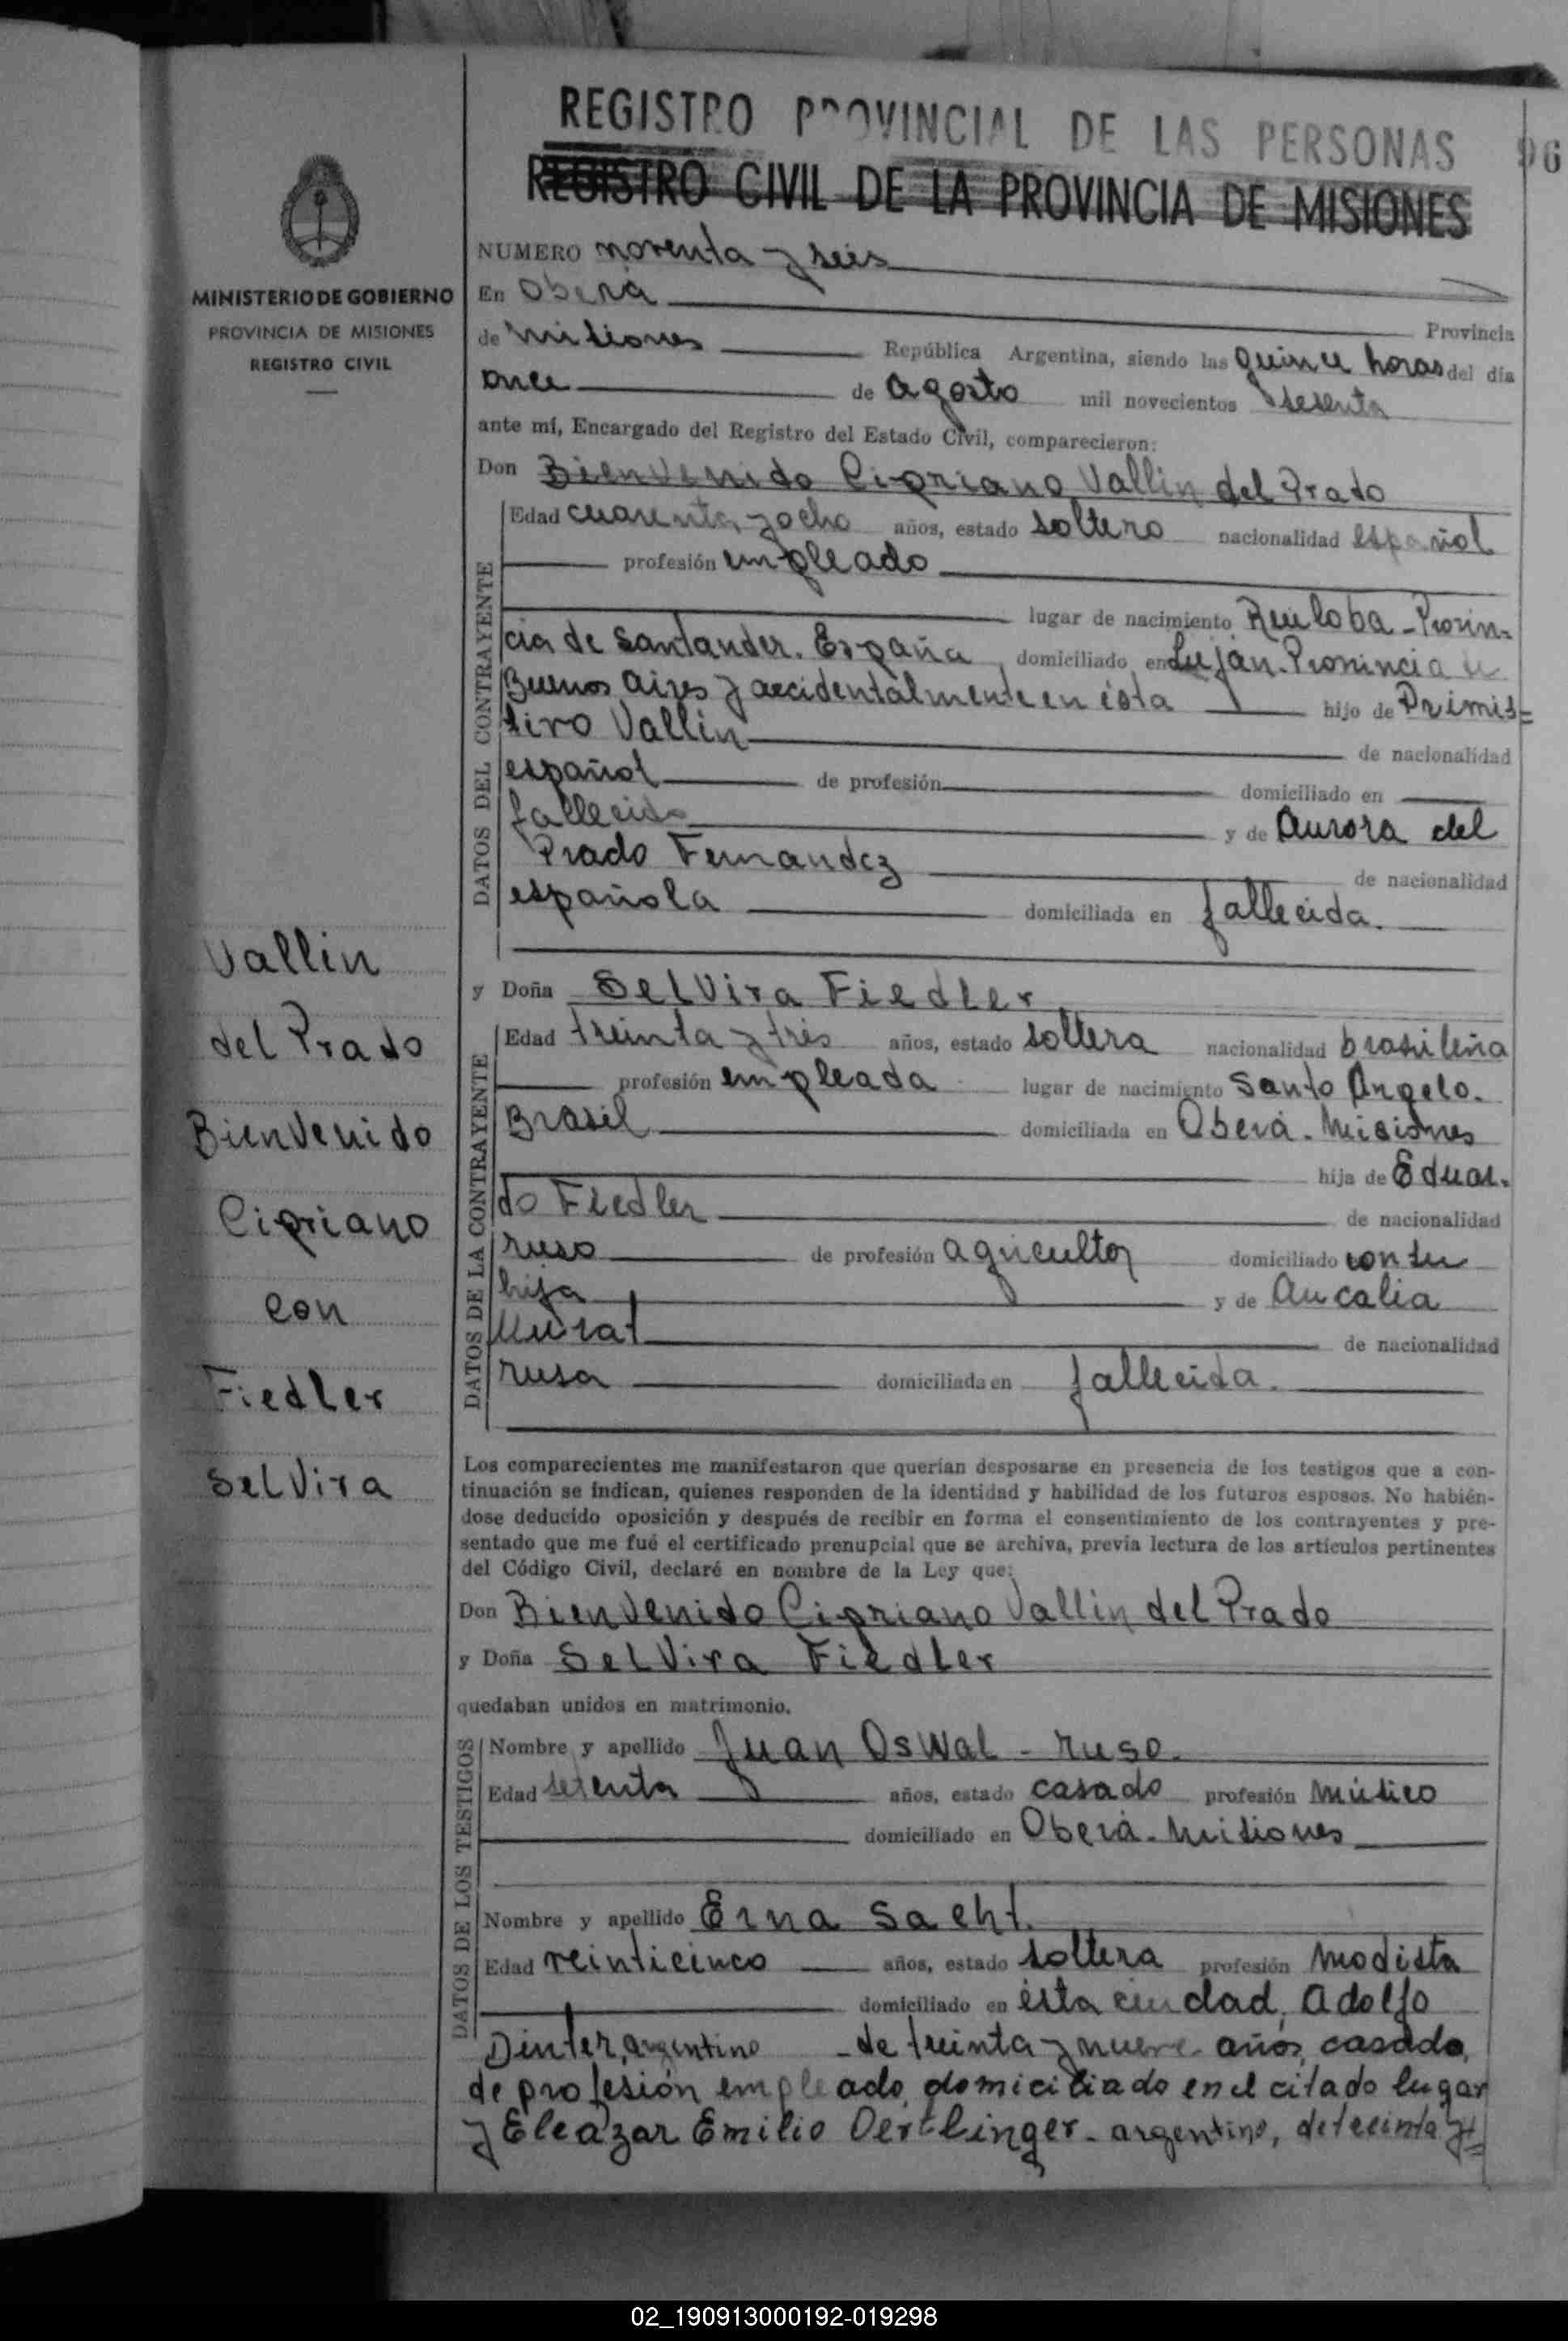 REGISTRO PROVINCIAL DE LAS PERSONAS
96
REGISTRO CIVIL DE LA PROVINCIA DE MISIONES
MINISTERIO DE GOBIERNO
PROVINCIA DE MISIONES
REGISTRO CIVIL
NUMERO noventa y seis
En Oberá Provincia
de Misiones República Argentina, siendo las quince horas del día
once de agosto mil novecientos sesenta
ante mí, Encargado del Registro del Estado Civil, comparecieron:
Don Bienvenido Cipriano Vallin del Prado
DATOS DEL CONTRAYENTE
Edad cuarenta y ocho años, estado soltero nacionalidad español
profesión empleado
lugar de nacimiento Ruiloba - Provin=
cia de Santander. España domiciliado en Luján. Provincia de
Buenos Aires y accidentalmente en ésta hijo de Primi=
tivo Vallin de nacionalidad
español de profesión domiciliado en
fallecido y de Aurora del
Prado Fernandez de nacionalidad
española domiciliada en fallecida.
y Doña Selvira Fiedler
DATOS DE LA CONTRAYENTE
Edad treinta y tres años, estado soltera nacionalidad brasileña
profesión empleada lugar de nacimiento Santo Angelo.
Brasil domiciliada en Oberá. Misiones
hija de Eduar.
do Fiedler de nacionalidad
ruso de profesión agricultor domiciliado con su
hija y de
de nacionalidad
rusa domiciliada en fallecida.
Vallin
del Prado
Bienvenido
Cipriano
con
Fiedler
Selvira
Los comparecientes me manifestaron que querían desposarse en presencia de los testigos que a con-
tinuación se indican, quienes responden de la identidad y habilidad de los futuros esposos. No habién-
dose deducido oposición y después de recibir en forma el consentimiento de los contrayentes y pre-
sentado que me fué el certificado prenupcial que se archiva, previa lectura de los artículos pertinentes
del Código Civil, declaré en nombre de la Ley que:
Don Bienvenido Cipriano Vallin del Prado
y Doña Selvira Fiedler
quedaban unidos en matrimonio.
DATOS DE LOS TESTIGOS
Nombre y apellido Juan Oswal - ruso.
Edad años, estado casado profesión músico
domiciliado en Oberá. Misiones
Nombre y apellido Erna Sacht.
Edad veinticinco años, estado soltera profesión modista
domiciliado en ésta ciudad, Adolfo
Dinter, argentino - de treinta y nueve años, casado,
de profesión empleado, domiciliado en el citado lugar
y Eleazar Emilio Oertlinger - argentino, de treinta y
02_190913000192-019298